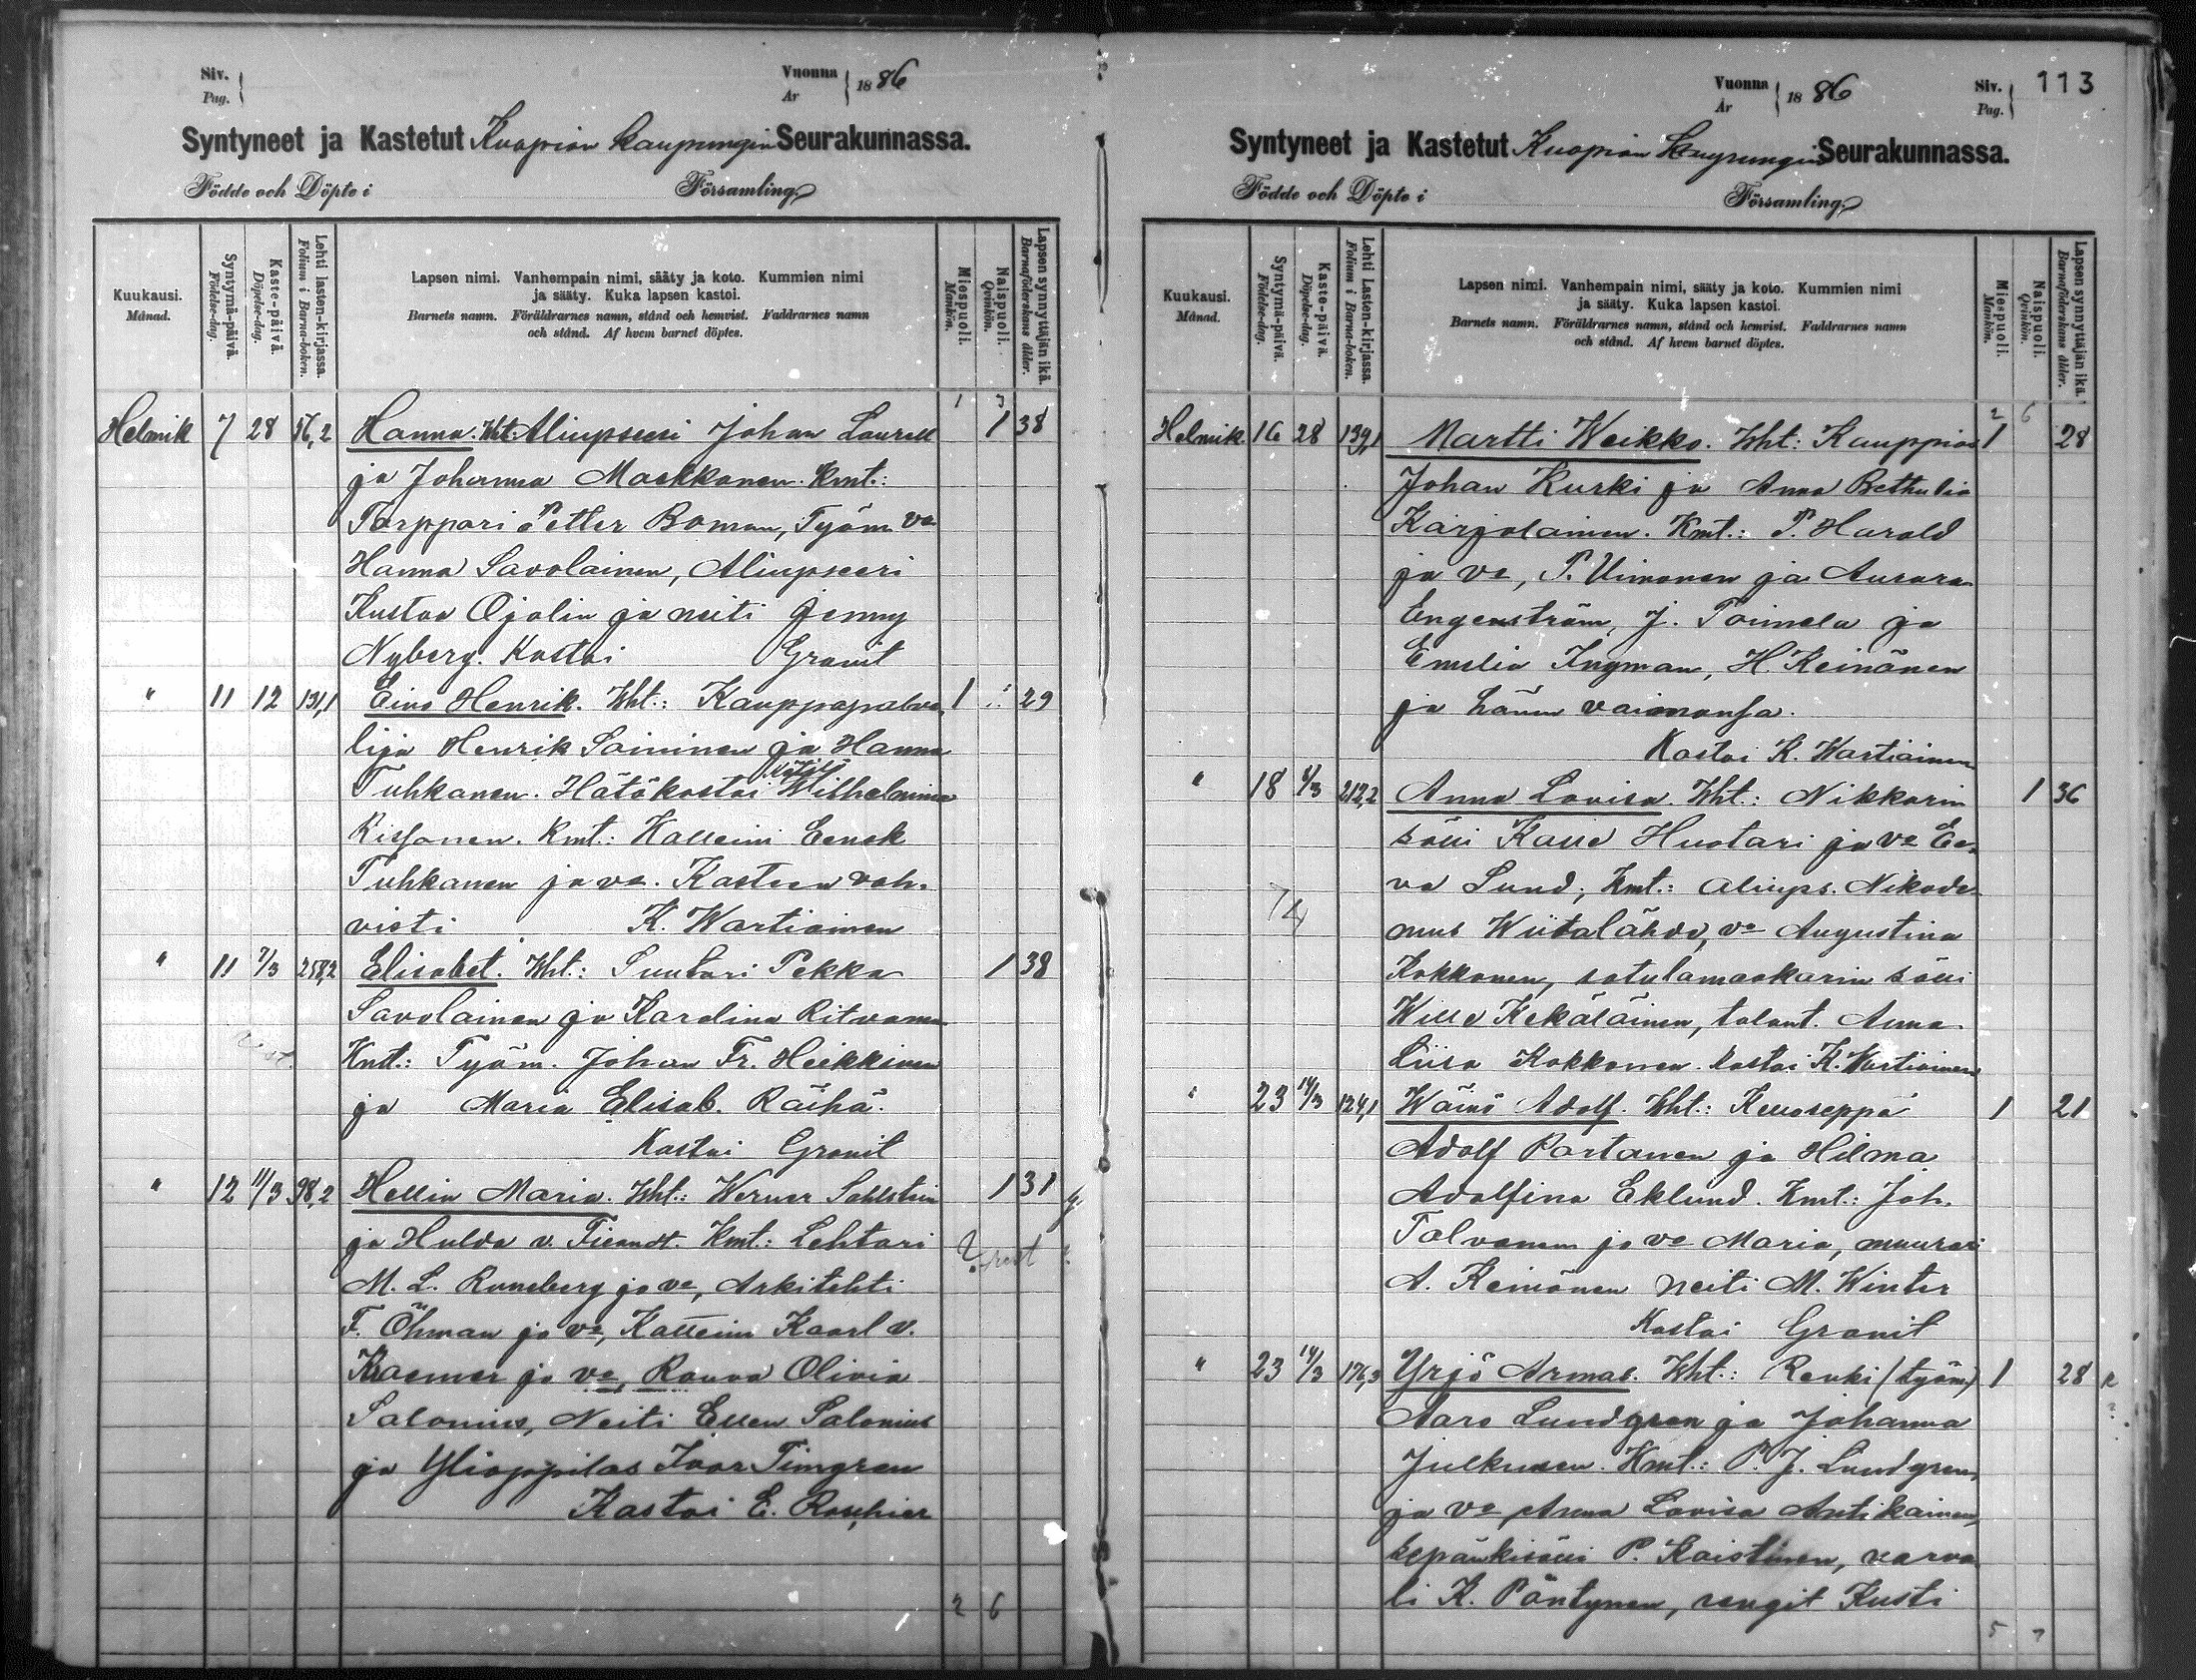 Siv.
Pag.
Vuonna
År
1886
Syntyneet ja Kastetut Kuopion kaupungin Seurakunnassa.
Födde och Döpte i Församling.
Kuukausi.
Månad.
Syntymä-päivä.
Födelse-dag.
Kaste-päivä.
Döpelse-dag.
Lehti lasten-kirjassa.
Folium i Barna-boken.
Lapsen nimi. Vanhempain nimi, sääty ja koto. Kummien nimi
ja sääty. Kuka lapsen kastoi.
Barnets namn. Föräldrarnes namn, stånd och hemvist. Faddrarnes namn
och stånd. Af hvem barnet döptes.
Miespuoli.
Mankön.
Naispuoli.
Qvinkön.
Lapsen synnyttäjän ikä.
Barnaföderskans ålder.
1 3
Helmik 7 28 56,2 Hanna. Wht: Aliupseeri Johan Laurell 1 38
ja Johanna Maekkonen. Kmt.:
Torppari Petter Boman, Työm. va
Hanna Savolainen, Aliupseeri
Kustaa Ojolin ja neiti Jenny
Nyberg. Kastoi Granit
" 11 12 131,1 Eino Henrik. Wht.: Kauppapalve- 1 29
lija Henrik Soininen ja Hanna
Tuhkanen. Hätäkastoi Wilhelmina
Rissanen. Kmt.: Kalleini Eenok
Tuhkanen ja va. Kasteen vah-
visti K. Wartiainen
" 11 7/3 258,2 Elisabet. Wht.: Suutari Pekka 1 38
Savolainen ja Karolina Ritvanen
Kmt.: Työm. Johan Fr. Heikkinen
ja Maria Elisab. Räihä.
Kastoi Granit
" 12 11/3 98,2 Hellin Maria. Wht.: Werner Sahlstein 1 31
ja Hulda v. Fieandt. Kmt.: Lehtori
M. L. Runeberg ja va, Arkitehti
F. Öhman ja va, Kalleini Kaarl v.
Kraemer ja va Rouva Olivia
Salonius, Neiti Ellen Salonius
ja Ylioppilas Ivar Timgren
Kastoi E. Roschier
2 6
Vuonna
År
1886
Siv.
Pag.
113
Syntyneet ja Kastetut Kuopion kaupungin Seurakunnassa.
Födde och Döpte i Församling.
Kuukausi.
Månad.
Syntymä-päivä.
Födelse-dag.
Kaste-päivä.
Döpelse-dag.
Lehti Lasten-kirjassa.
Folium i Barna-boken.
Lapsen nimi. Vanhempain nimi, sääty ja koto. Kummien nimi
ja sääty. Kuka lapsen kastoi.
Barnets namn. Föräldrarnes namn, stånd och hemvist. Faddrarnes namn
och stånd. Af hvem barnet döptes.
Miespuoli.
Mankön.
Naispuoli.
Qvinkön.
Lapsen synnyttäjän ikä.
Barnaföderskans ålder.
2 6
Helmik 16 28 139,1 Martti Weikko. Wht: Kauppias 1 28
Johan Kurki ja Anna Bethulia
Karjalainen. Kmt.: P. Harald
ja va, P. Uimonen ja Aurora
Engenström, J. Toimela ja
Emelia Ingman, H. Keinänen
ja hänen vaimonsa.
Kastoi K. Wartiainen
" 18 4/3 212,2 Anna Lovisa. Wht.: Nikkarin 1 36
sälli Kalle Huotari ja va Ee-
va Lund; Kmt.: aliups. Nikode-
mus Wiitalähde, va Augustina
Kokkonen, satulamaakarin sälli
Wille Kekäläinen, talont. Anna
Liisa Kokkonen. kastoi K. Wartiainen
" 23 14/3 124,1 Wäinö Adolf. Wht.: Kelloseppä 1 21
Adolf Partanen ja Hilma
Adolfina Eklund. Kmt.: Joh.
Tolvanen ja va Maria, muurari
A. Keinänen neiti M. Winter
Kastoi Granit
" 23 14/3 176,3 Yrjö Armas. Wht.: Renki (työm) 1 28
Aaro Lundgren ja Johanna
Julkunen. Kmt.: P. J. Lundgren,
ja va Anna Lovisa Antikainen,
sepänkisälli P. Kaistinen, varva-
li K. Päntynen, rengit Kusti
5 7